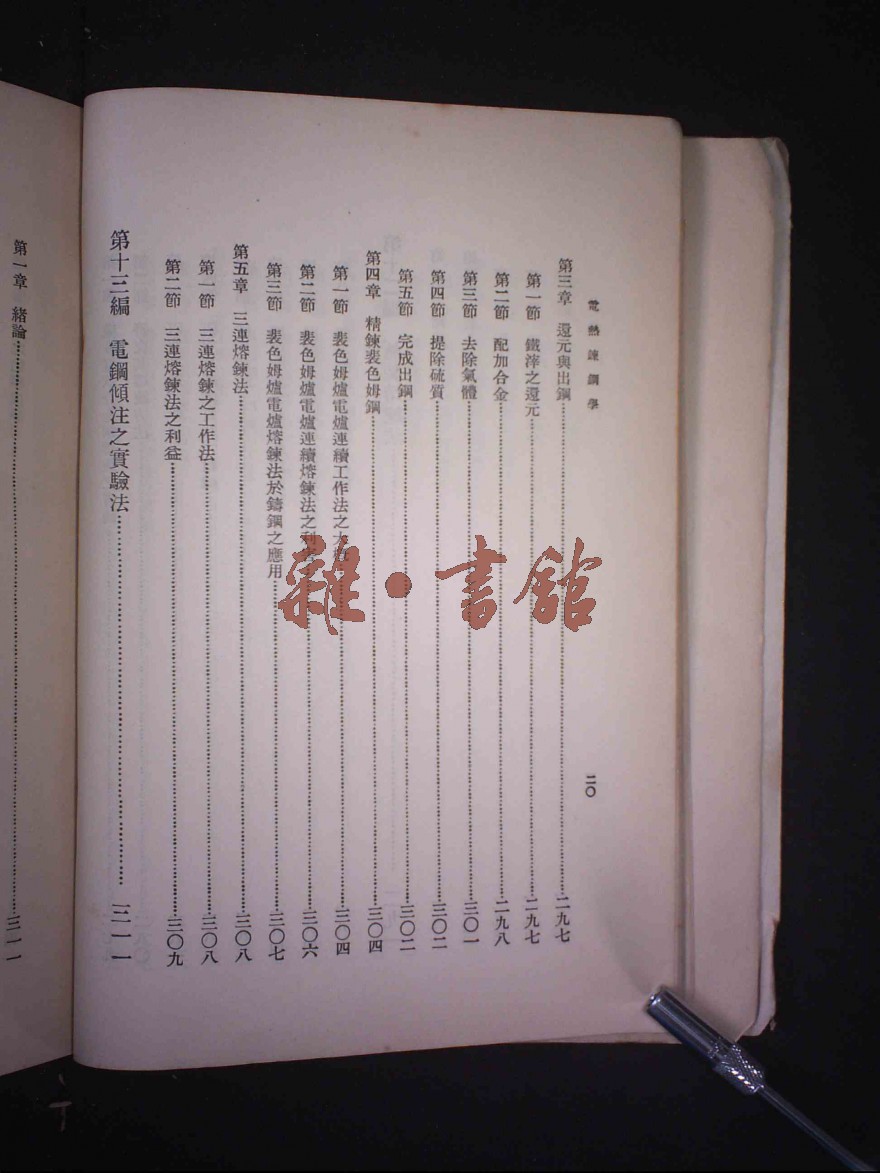 電熱鍊鋼學
二〇
第三章　還元與出鋼……二九七
第一節　鐵滓之還元……二九七
第二節　配加合金……二九八
第三節　去除氣體……三〇一
第四節　提除硫質……三〇二
第五節　完成出鋼……三〇二
第四章　精鍊裴色姆鋼……三〇四
第一節　裴色姆爐電爐連續工作法之大……三〇四
第二節　裴色姆爐電爐連續熔鍊法之利……三〇六
第三節　裴色姆爐電爐熔鍊法於鑄鋼之應用……三〇七
第五章　三連熔鍊法……三〇八
第一節　三連熔鍊之工作法……三〇八
第二節　三連熔鍊法之利益……三〇九
第十三編　電鋼傾注之實驗法……三一一
第一章　緒論……三一一
雜·書館